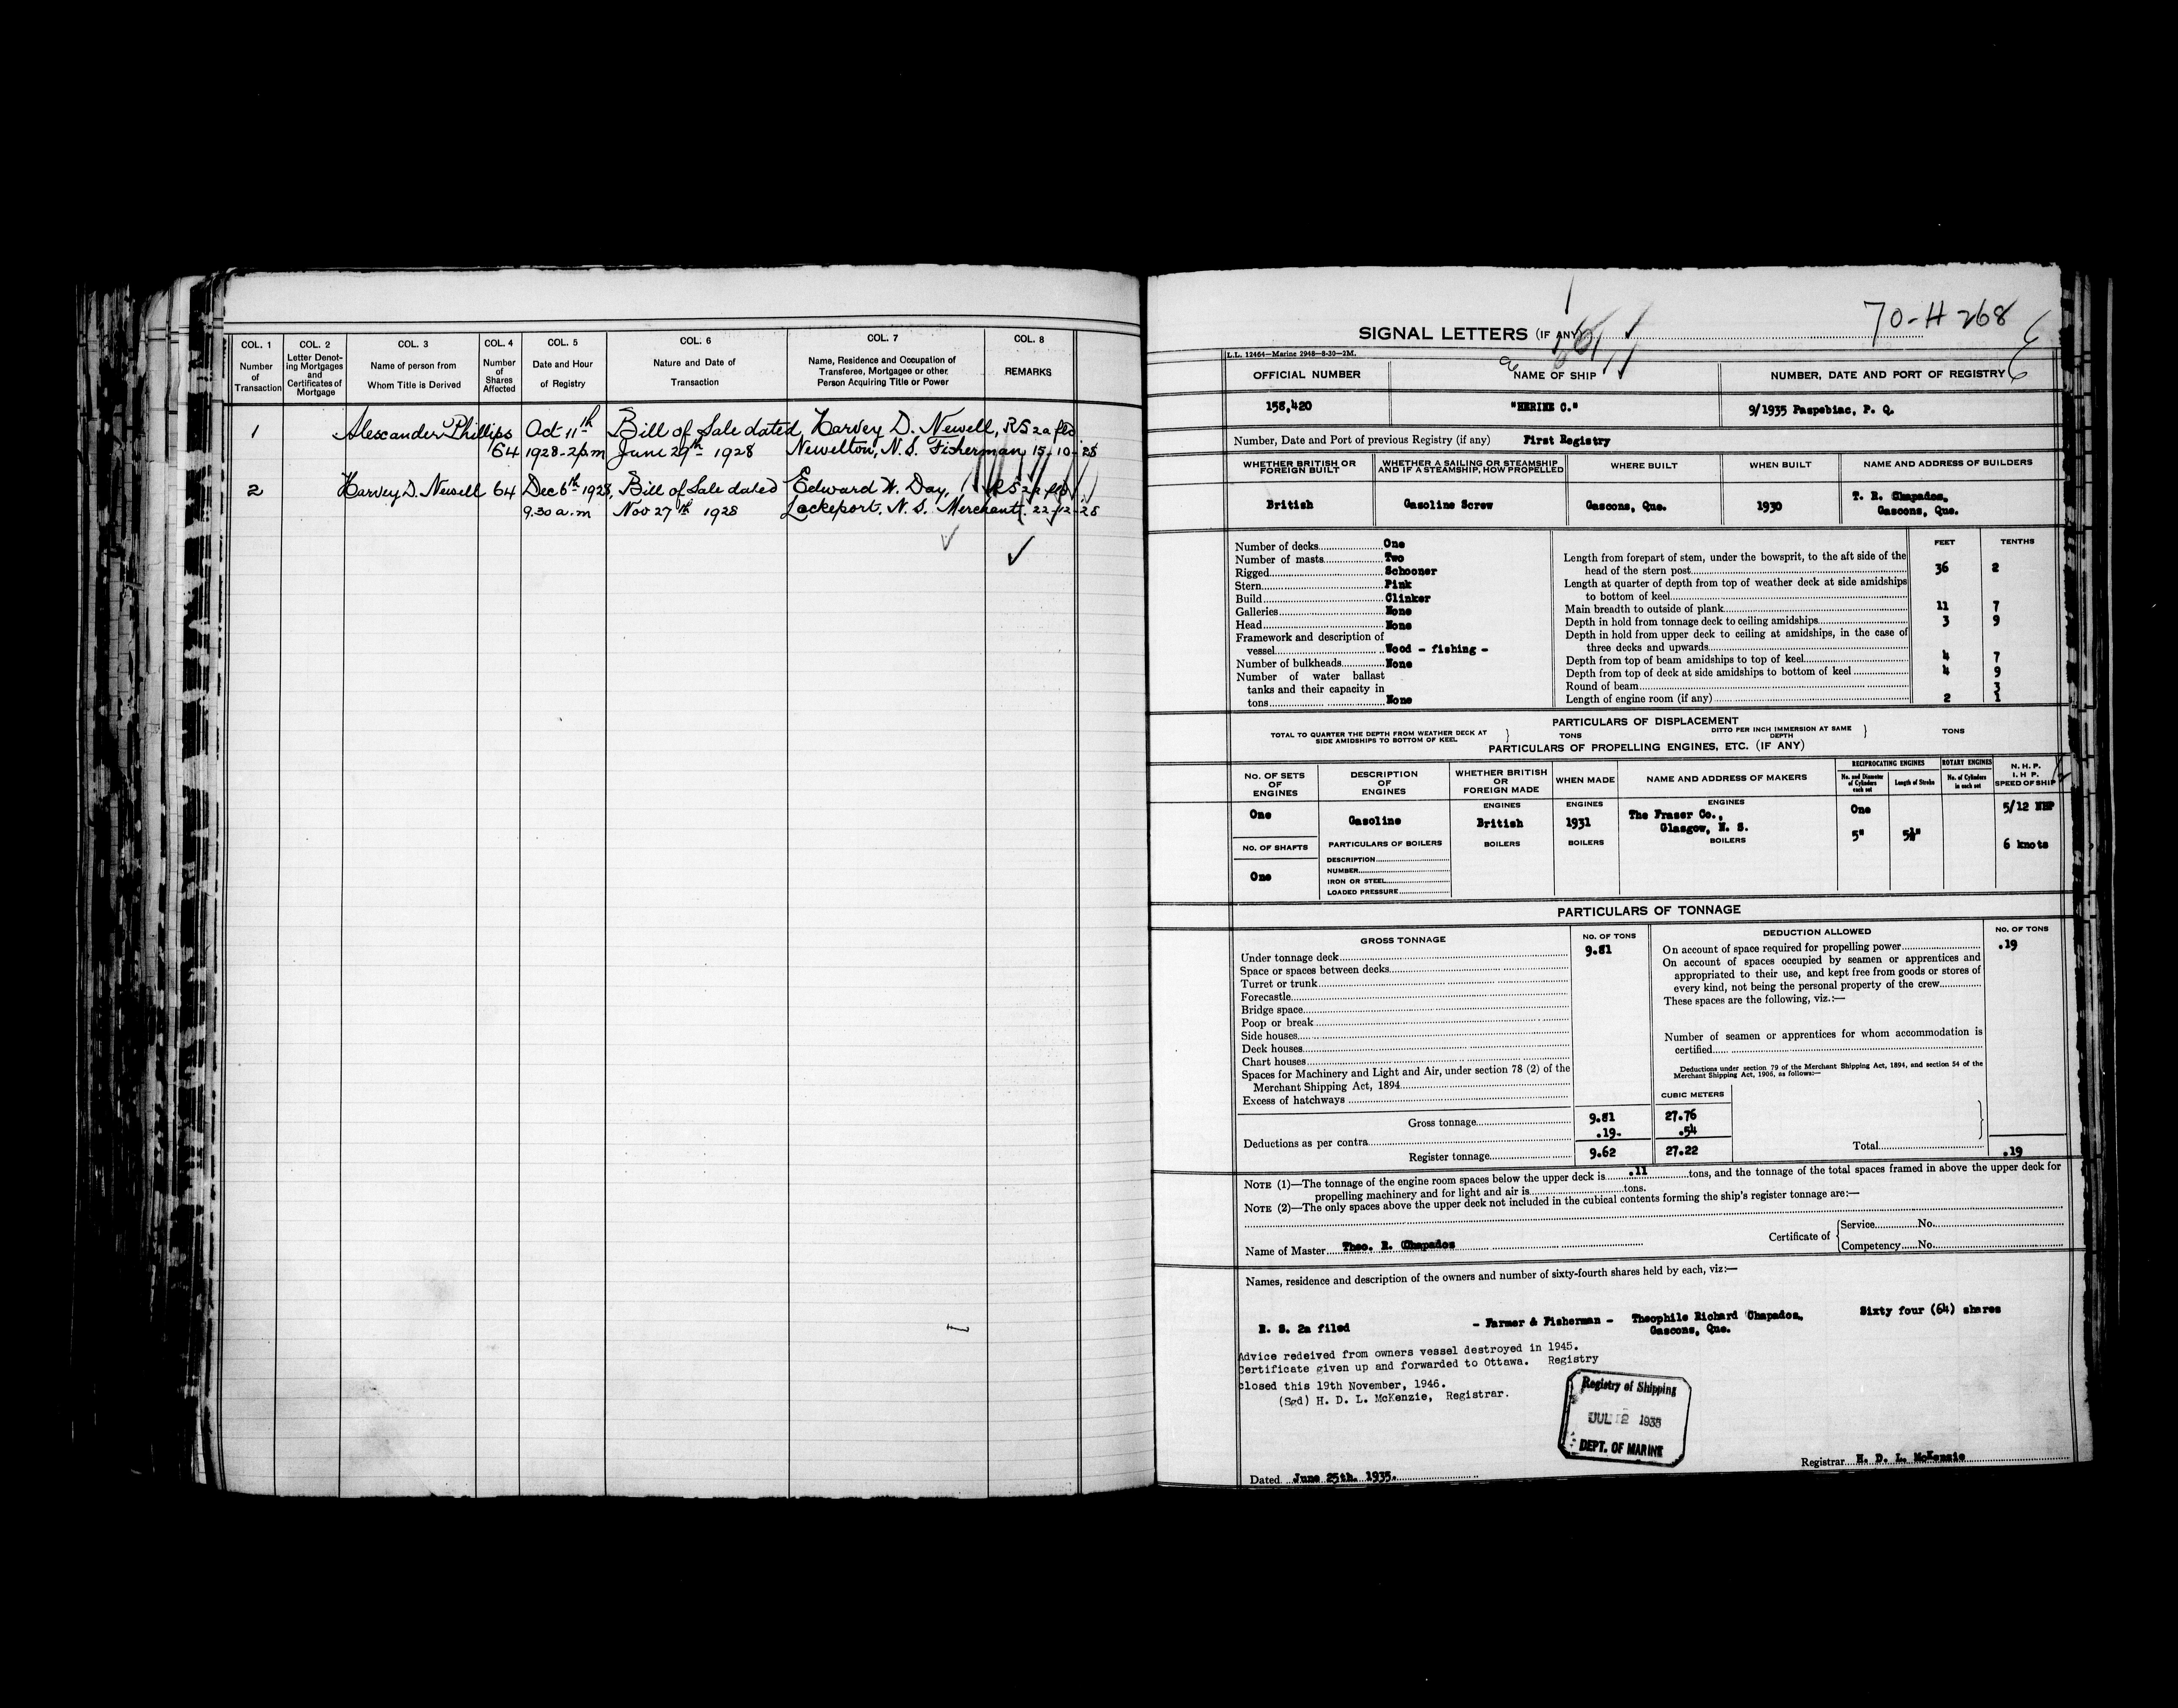 COL. 1
Number
of
Transaction
COL. 2
Letter Denot-
ing Mortgages
and
Certificates of
Mortgage
COL. 3
Name of person from
Whom Title is Derived
COL. 4
Number
of
Shares
Affected
COL. 5
Date and Hour
of Registry
COL. 6
Nature and Date of
Transaction
COL. 7
Name, Residence and Occupation of
Transferee, Mortgagee or other
Person Acquiring Title or Power
COL. 8
REMARKS
1 Alexander Phillips Oct 11th Bill of Sale dated, Harvey D. Newell, RS 2a fld
64 1928-2p.m June 29th 1928 Newelton, N.S. Fisherman 15-10-28
2 Harvey D. Newell 64 Dec 6th 1928, Bill of Sale dated Edward W. Day, RS 2a fld
9.30 a.m Nov 27th 1928 Lockeport, N.S. Merchant. 22-12-28
70-H 268
SIGNAL LETTERS (IF ANY)
L.L. 12464—Marine 2948—8-30—2M.
OFFICIAL NUMBER NAME OF SHIP NUMBER, DATE AND PORT OF REGISTRY
158,420 "HERINE C." 9/1935 Paspebiac, P. Q.
Number, Date and Port of previous Registry (if any) First Registry
WHETHER BRITISH OR
FOREIGN BUILT
WHETHER A SAILING OR STEAMSHIP
AND IF A STEAMSHIP, HOW PROPELLED
WHERE BUILT WHEN BUILT NAME AND ADDRESS OF BUILDERS
British Gasoline Screw Gascons, Que. 1930 T. R. Chapados,
Gascons, Que.
Number of decks One
Number of masts Two
Rigged Schooner
Stern Pink
Build Clinker
Galleries None
Head None
Framework and description of
vessel Wood - fishing -
Number of bulkheads None
Number of water ballast
tanks and their capacity in
tons None
FEET TENTHS
Length from forepart of stem, under the bowsprit, to the aft side of the
head of the stern post 36 2
Length at quarter of depth from top of weather deck at side amidships
to bottom of keel
Main breadth to outside of plank 11 7
Depth in hold from tonnage deck to ceiling amidships 3 9
Depth in hold from upper deck to ceiling at amidships, in the case of
three decks and upwards
Depth from top of beam amidships to top of keel 4 7
Depth from top of deck at side amidships to bottom of keel 4 9
Round of beam 3
Length of engine room (if any) 2 1
PARTICULARS OF DISPLACEMENT
TOTAL TO QUARTER THE DEPTH FROM WEATHER DECK AT
SIDE AMIDSHIPS TO BOTTOM OF KEEL
TONS
DITTO PER INCH IMMERSION AT SAME
DEPTH
TONS
PARTICULARS OF PROPELLING ENGINES, ETC. (IF ANY)
NO. OF SETS
OF
ENGINES
DESCRIPTION
OF
ENGINES
WHETHER BRITISH
OR
FOREIGN MADE
WHEN MADE
NAME AND ADDRESS OF MAKERS
RECIPROCATING ENGINES
No. and Diameter
of Cylinders
each set
Length of Stroke
ROTARY ENGINES
No. of Cylinders
in each set
N. H. P.
I. H. P.
SPEED OF SHIP
ENGINES ENGINES ENGINES
One Gasoline British 1931 The Fraser Co.,
Glasgow, N. S.
One
5" 5½"
5/12 NHP
6 knots
NO. OF SHAFTS PARTICULARS OF BOILERS BOILERS BOILERS BOILERS
One
DESCRIPTION
NUMBER
IRON OR STEEL
LOADED PRESSURE
PARTICULARS OF TONNAGE
GROSS TONNAGE NO. OF TONS DEDUCTION ALLOWED NO. OF TONS
Under tonnage deck 9.81
Space or spaces between decks
Turret or trunk
Forecastle
Bridge space
Poop or break
Side houses
Deck houses
Chart houses
Spaces for Machinery and Light and Air, under section 78 (2) of the
Merchant Shipping Act, 1894
Excess of hatchways
On account of space required for propelling power .19
On account of spaces occupied by seamen or apprentices and
appropriated to their use, and kept free from goods or stores of
every kind, not being the personal property of the crew
These spaces are the following, viz.:—
Number of seamen or apprentices for whom accommodation is
certified
Deductions under section 79 of the Merchant Shipping Act, 1894, and section 54 of the
Merchant Shipping Act, 1906, as follows:—
CUBIC METERS
Gross tonnage 9.81 27.76
Deductions as per contra .19- .54
Register tonnage 9.62 27.22
Total .19
NOTE (1)—The tonnage of the engine room spaces below the upper deck is .11 tons, and the tonnage of the total spaces framed in above the upper deck for
propelling machinery and for light and air is tons.
NOTE (2)—The only spaces above the upper deck not included in the cubical contents forming the ship's register tonnage are:—
Name of Master Theo. R. Chapados
Certificate of
Service No.
Competency No.
Names, residence and description of the owners and number of sixty-fourth shares held by each, viz:—
R. S. 2a filed - Farmer & Fisherman - Theophile Richard Chapados, Sixty four (64) shares
Gascons, Que.
Advice redeived from owners vessel destroyed in 1945.
Certificate given up and forwarded to Ottawa. Registry
closed this 19th November, 1946.
(Sgd) H. D. L. McKenzie, Registrar.
Registry of Shipping
JUL 2 1935
DEPT. OF MARINE
Dated June 25th. 1935.
Registrar H. D. L. McKenzie